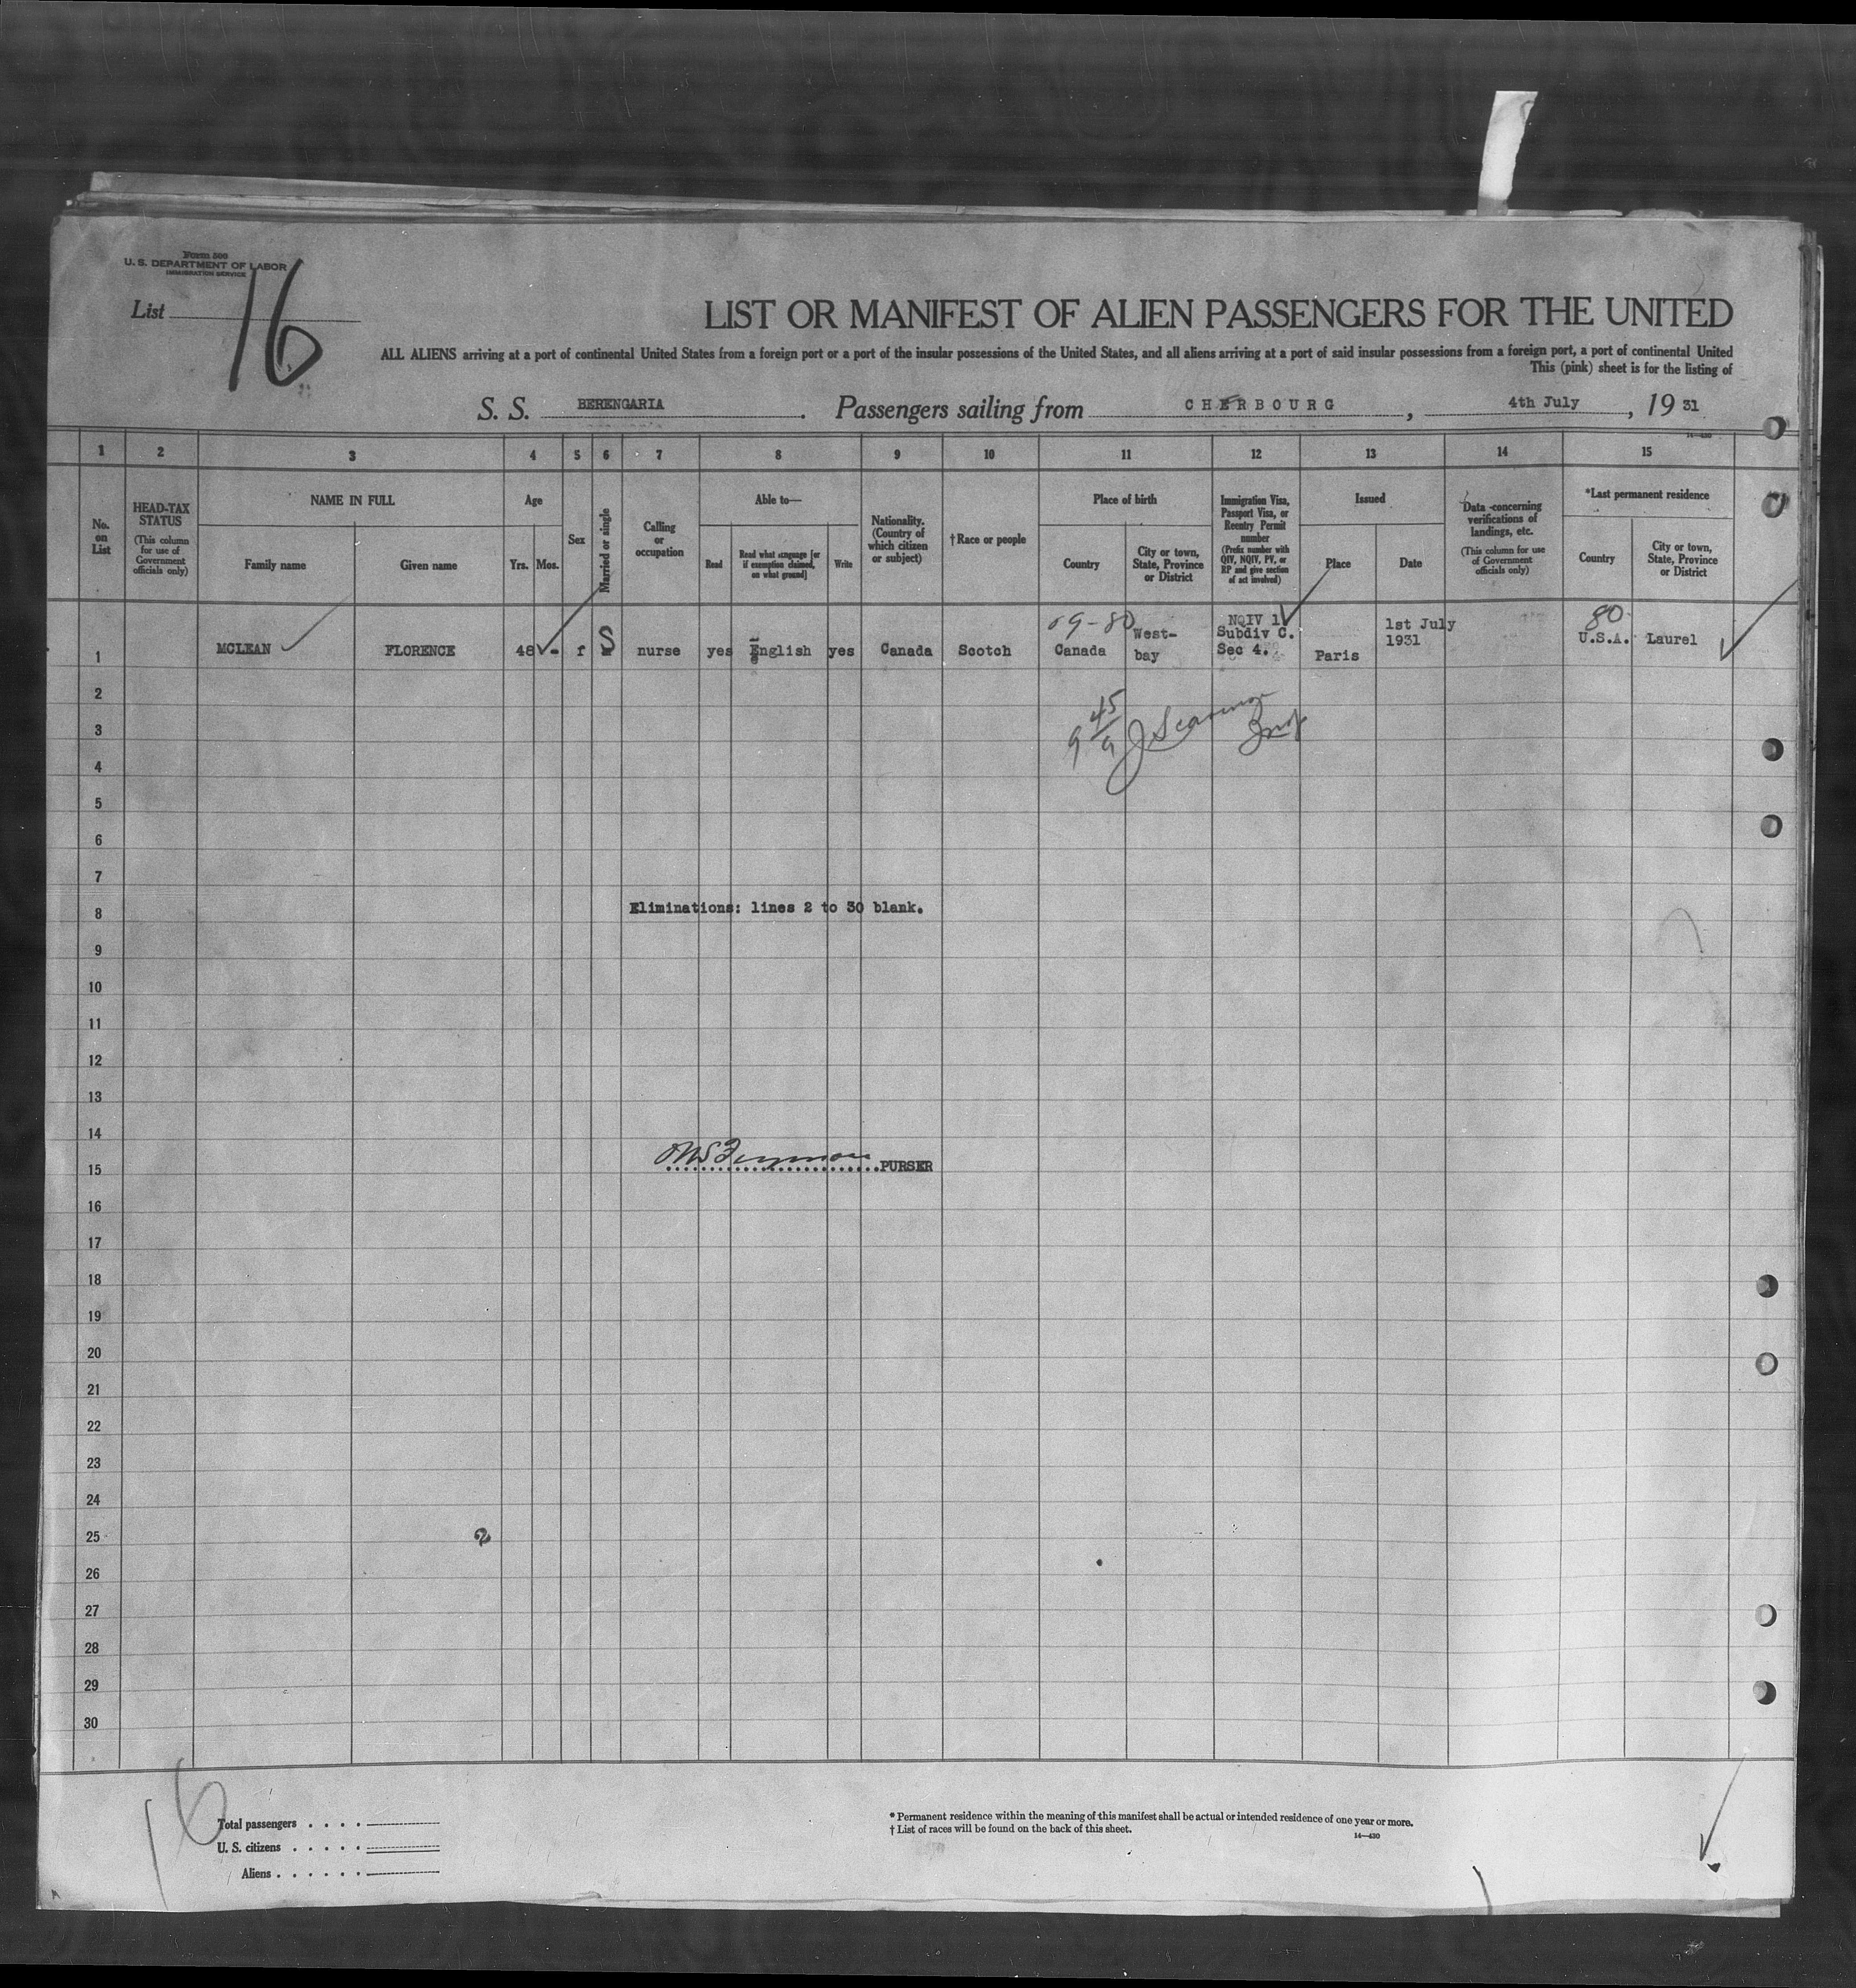 Form 500
U. S. DEPARTMENT OF LABOR
IMMIGRATION SERVICE
List 16
LIST OR MANIFEST OF ALIEN PASSENGERS FOR THE UNITED
ALL ALIENS arriving at a port of continental United States from a foreign port or a port of the insular possessions of the United States, and all aliens arriving at a port of said insular possessions from a foreign port, a port of continental United
This (pink) sheet is for the listing of
S. S. BERENGARIA . Passengers sailing from CHERBOURG , 4th July , 19 31
14—430
1 2 3 4 5 6 7 8 9 10 11 12 13 14 15
No. on List
HEAD-TAX STATUS
(This column for use of Government officials only)
NAME IN FULL
Family name
Given name
Age
Yrs. Mos.
Sex
Married or single
Calling or occupation
Able to—
Read
Read what language [or if exemption claimed, on what ground]
Write
Nationality. (Country of which citizen or subject)
†Race or people
Place of birth
Country
City or town, State, Province or District
Immigration Visa, Passport Visa, or Reentry Permit number
(Prefix number with QIV, NQIV, PV, or RP and give section of act involved)
Issued
Place
Date
Data concerning verifications of landings, etc.
(This column for use of Government officials only)
*Last permanent residence
Country
City or town, State, Province or District
09-80 80
1 MCLEAN FLORENCE 48 - f S nurse yes English yes Canada Scotch Canada West-bay NQIV 1 Subdiv C. Sec 4. Paris 1st July 1931 U.S.A. Laurel
2
3
9 45/9
4
5
6
7
8
Eliminations: lines 2 to 30 blank.
9
10
11
12
13
14
15
PURSER
16
17
18
19
20
21
22
23
24
25
26
27
28
29
30
16
Total passengers . . . .
U. S. citizens . . . . .
Aliens . . . . . .
* Permanent residence within the meaning of this manifest shall be actual or intended residence of one year or more.
† List of races will be found on the back of this sheet.
14—430